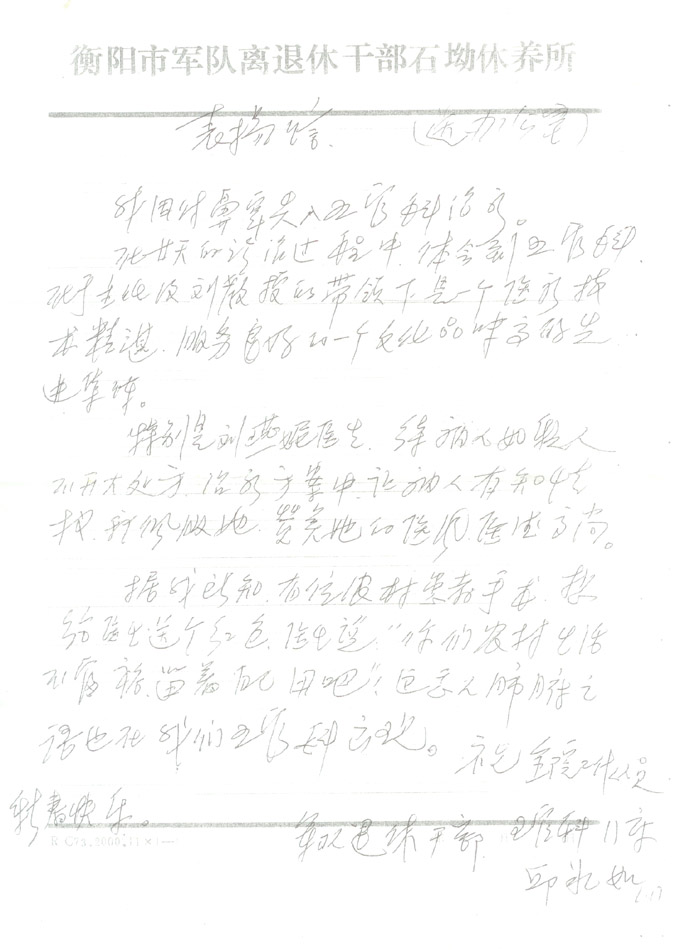 衡阳市军队离退休干部石坳休养所
表扬信 (送办公室)
我因对鼻窦炎入五官科治疗。
在廿天的诊治过程中,体会到五官科,
在主任及刘教授的带领下是一个医疗技
术精湛,服务良好的一个文化品味高的先
进集体。
特别是刘燕娓医生,待病人如亲人
不开大处方,治疗方案中,让病人有知情
权,我佩服她,赞美她的医风,医德高尚。
据我所知,有位农村患者手术,想
给医生送个红包,医生说:“你们农村生活
不富裕,留着自己用吧”!这感人肺腑之
语也在我们五官科出现。 祝全院工作人员
新春快乐。
军队退休干部 五官科11床
邱